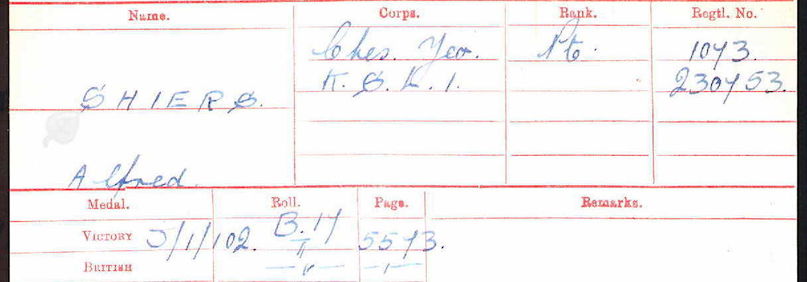 Name. Corps. Rank. Regtl. No.
Ches. Yeo. Pte. 1073.
K. S. L. I. 230753.
SHIERS.
Alfred.
Medal. Roll. Page. Remarks.
VICTORY J/1/102. B.17 5573.
BRITISH —"— —"—